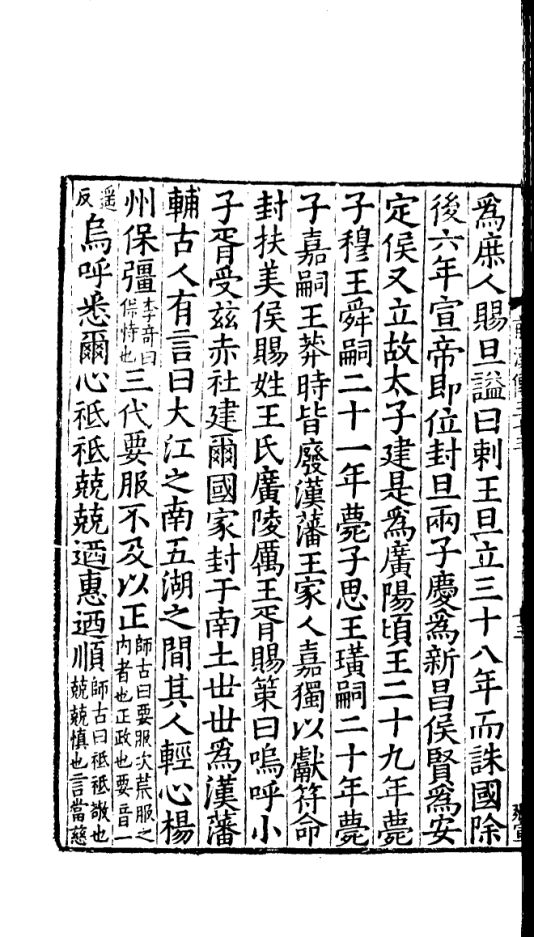 爲庶人賜旦諡曰剌王旦立三十八年而誅國除
後六年宣帝即位封旦兩子慶爲新昌侯賢爲安
定侯又立故太子建是爲廣陽頃王二十九年薨
子穆王舜嗣二十一年薨子思王璜嗣二十年薨
子嘉嗣王莽時皆廢漢藩王家人嘉獨以獻符命
封扶美侯賜姓王氏廣陵厲王胥賜策曰嗚呼小
子胥受兹赤社建爾國家封于南土丗丗爲漢藩
輔古人有言曰大江之南五湖之間其人輕心楊
州保彊李竒曰保恃也三代要服不及以正師古曰要服次荒服之内者也正政也要音一
遥反烏呼悉爾心祗祗兢兢迺惠迺順師古曰祗祗敬也兢兢慎也言當慈